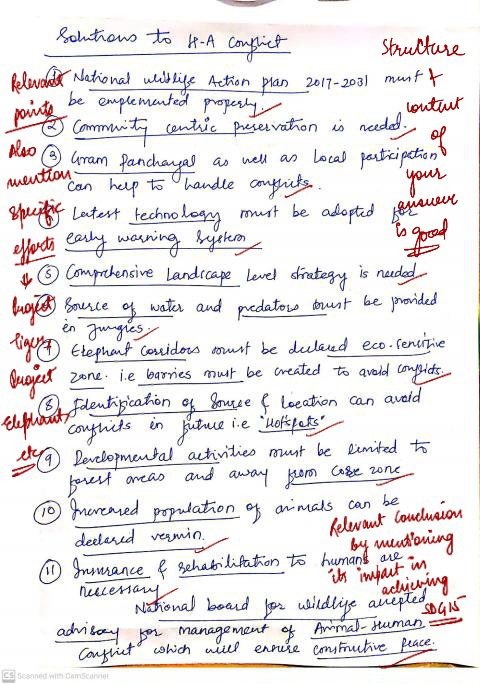 Solutions to H-A Conflict
Structure
&
content
of
your
answer
is good
Relevant
points
Also
mention
specific
efforts
↓
Project
Tiger
Project
Elephant,
etc
① National wildlife Action plan 2017-2031 must
be emplemented properly.
② Community centric preservation is needed.
③ Gram Panchayat as well as local participation
can help to handle conflicts.
Latest technology must be adopted for
early warning system
⑤ Comprehensive Landscape level strategy is needed
Source of water and predators must be provided
in jungles.
⑦ Elephant corridors must be declared eco-sensitive
zone. i.e barries must be created to avoid conflicts.
⑧ Identification of Source & location can avoid
conflicts in future i.e "Hotspots"
⑨ Developmental activities must be limited to
forest areas and away from core zone
⑩ Increased population of animals can be
declared vermin.
⑪ Insurance & rehabilitation to humans are
necessary
National board for wildlife accepted
advisory for management of Animal-Human
Conflict which will ensure constructive peace.
Relevant Conclusion
by mentioning
its impact in
achieving
SDG 15
CS Scanned with CamScanner